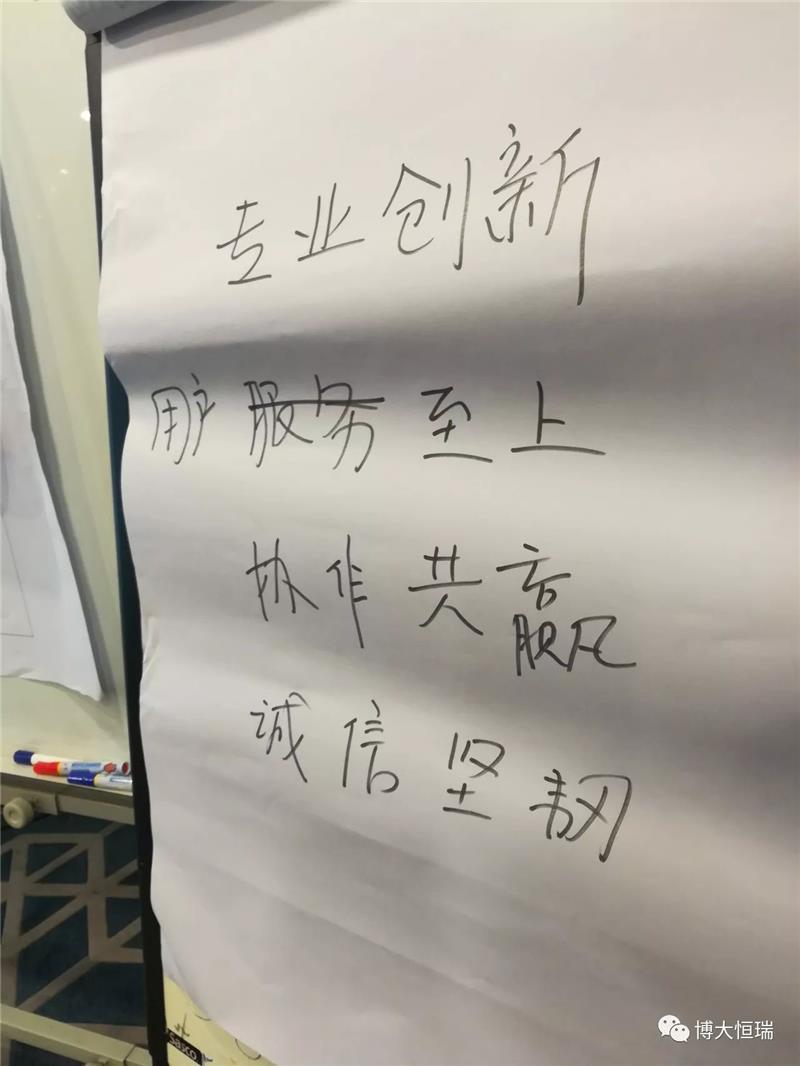 专业创新
用户服务至上
协作共赢
诚信坚韧
sasco
博大恒瑞